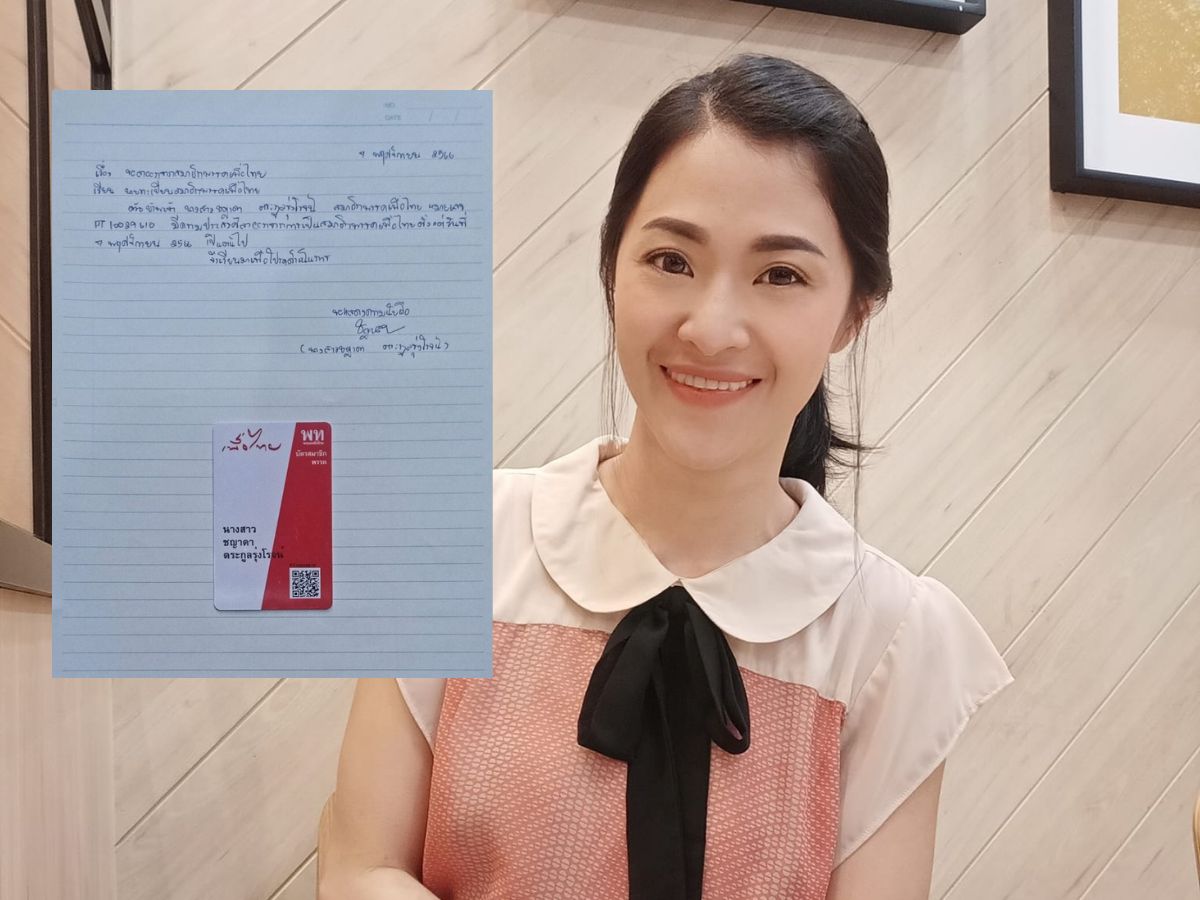 NO.
DATE / /
๗ พฤศจิกายน 2566
เรื่อง ขอลาออกจากสมาชิกพรรคเพื่อไทย
เรียน นายทะเบียนสมาชิกพรรคเพื่อไทย
ด้วยข้าพเจ้า นางสาวชญาดา ตระกูลรุ่งโรจน์ สมาชิกพรรคเพื่อไทย หมายเลข
PT 10039610 มีความประสงค์ลาออกจากการเป็นสมาชิกพรรคเพื่อไทย ตั้งแต่วันที่
๗ พฤศจิกายน 2566 เป็นต้นไป
จึงเรียนมาเพื่อโปรดดำเนินการ
ขอแสดงความนับถือ
(นางสาวชญาดา ตระกูลรุ่งโรจน์)
เพื่อไทย
พท
บัตรสมาชิก
พรรค
นางสาว
ชญาดา
ตระกูลรุ่งโรจน์